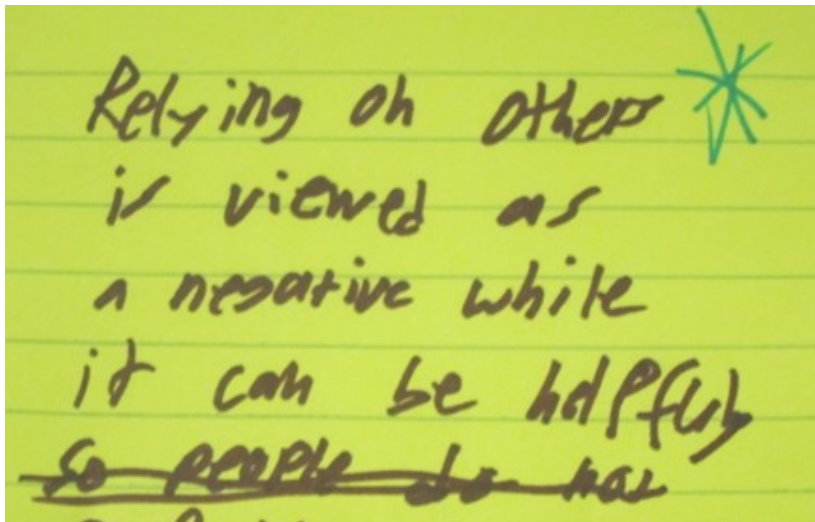 Relying on others
is viewed as
a negative while
it can be helpful,
so people do not